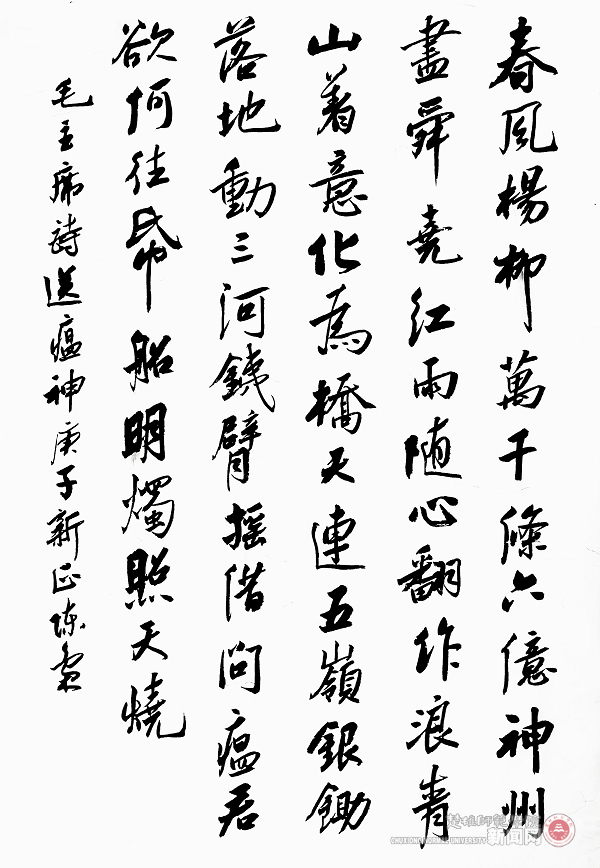 春風楊柳萬千條六億神州
盡舜堯紅雨随心翻作浪青
山着意化為橋天連五嶺銀鋤
落地動三河鐵臂摇借问瘟君
欲何往帋船明燭照天燒
毛主席詩送瘟神庚子新正陈
新闻网